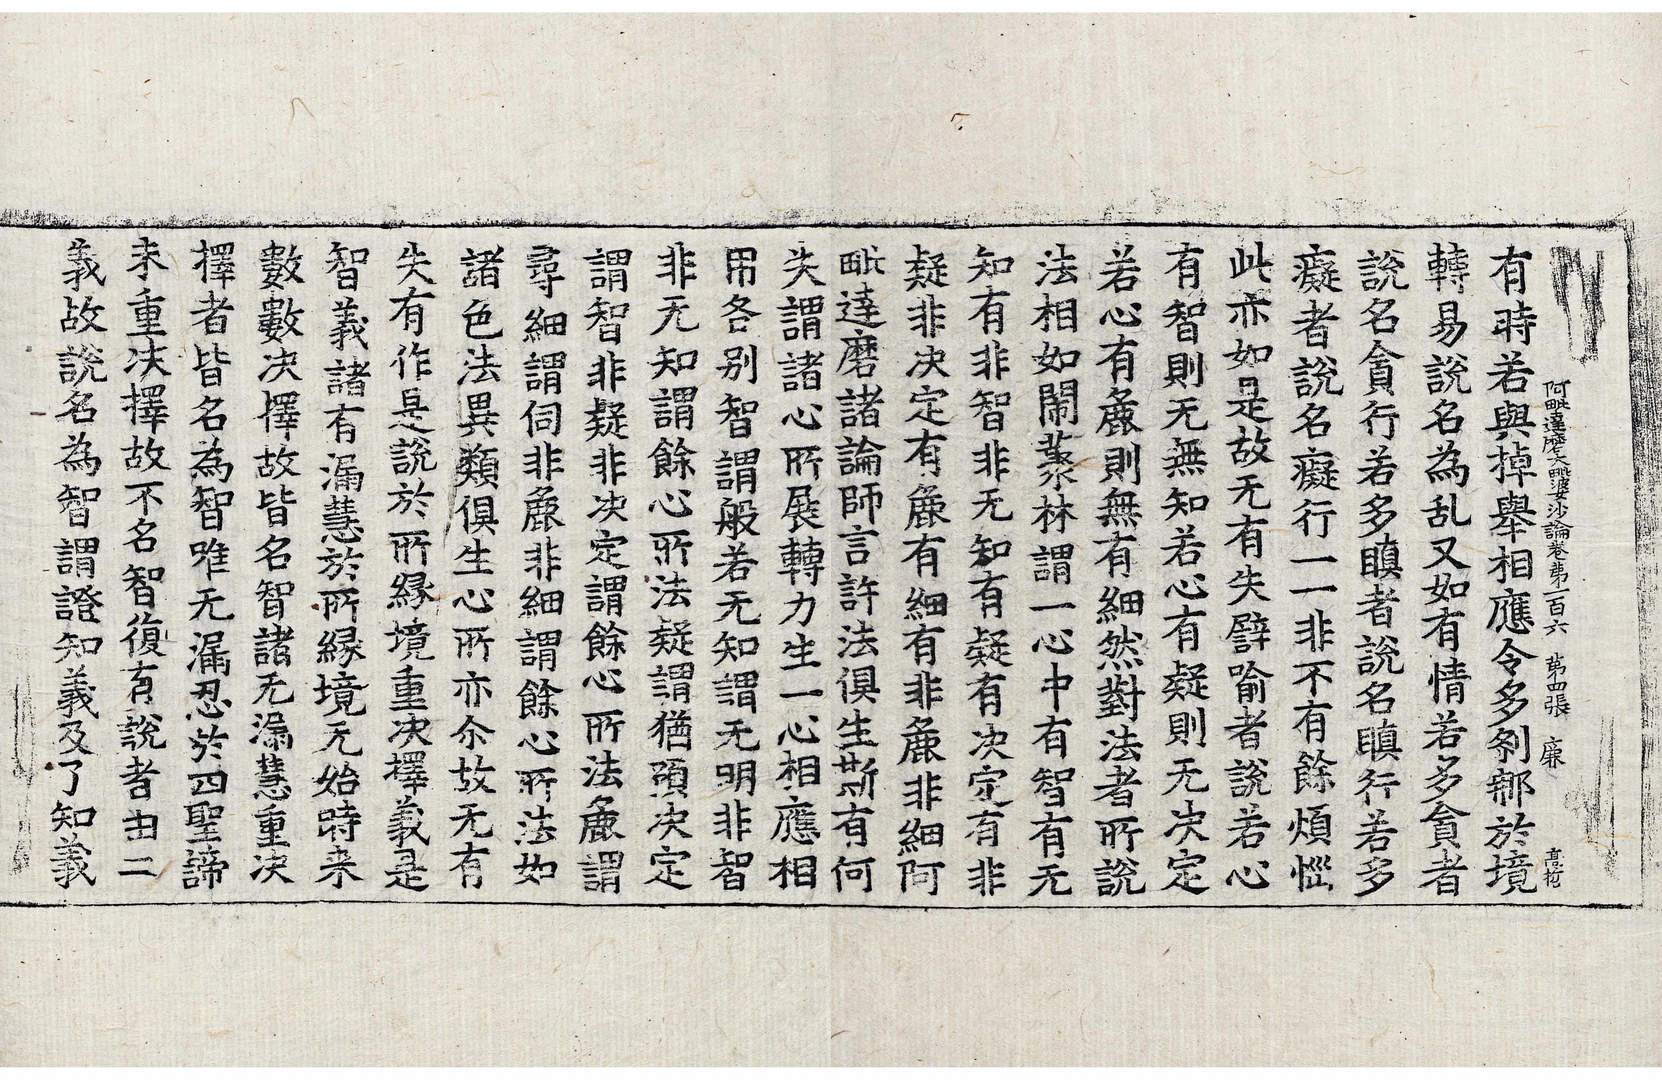 阿毗達磨大毗婆沙論卷第一百六　第四張　廉
有時若與掉舉相應令多剎那於境
轉易說名為乱又如有情若多貪者
說名貪行若多瞋者說名瞋行若多
癡者說名癡行一一非不有餘煩惱
此亦如是故无有失譬喻者說若心
有智則无無知若心有疑則无决定
若心有麁則無有細然對法者所說
法相如鬧藂林謂一心中有智有无
知有非智非无知有疑有决定有非
疑非决定有麁有細有非麁非細阿
毗達磨諸論師言許法俱生斯有何
失謂諸心所展轉力生一心相應相
用各别智謂般若无知謂无明非智
非无知謂餘心所法疑謂猶預决定
謂智非疑非决定謂餘心所法麁謂
尋細謂伺非麁非細謂餘心所法如
諸色法異類俱生心所亦尒故无有
失有作是說於所縁境重决擇義是
智義諸有漏慧於所縁境无始時来
數數决擇故皆名智諸无漏慧重决
擇者皆名為智唯无漏忍於四聖諦
未重决擇故不名智復有說者由二
義故說名為智謂證知義及了知義